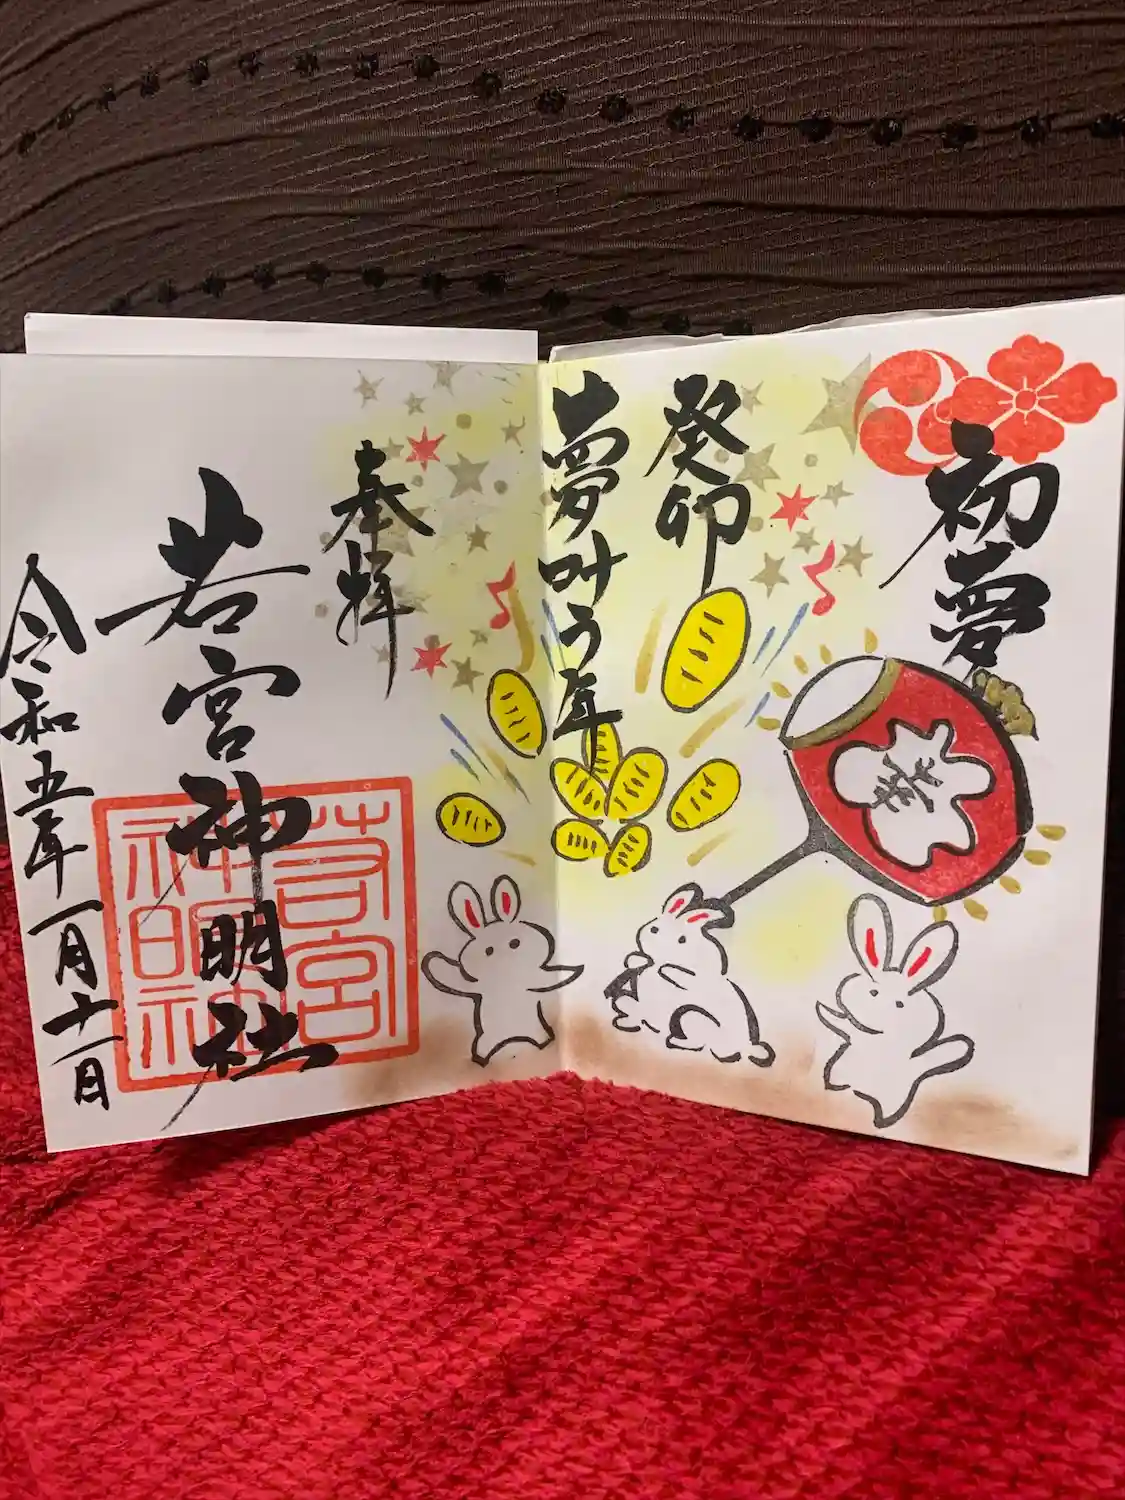 初夢
癸卯
夢叶う年
奉拝
若宮神明社
令和五年一月十一日
若宮
神明社